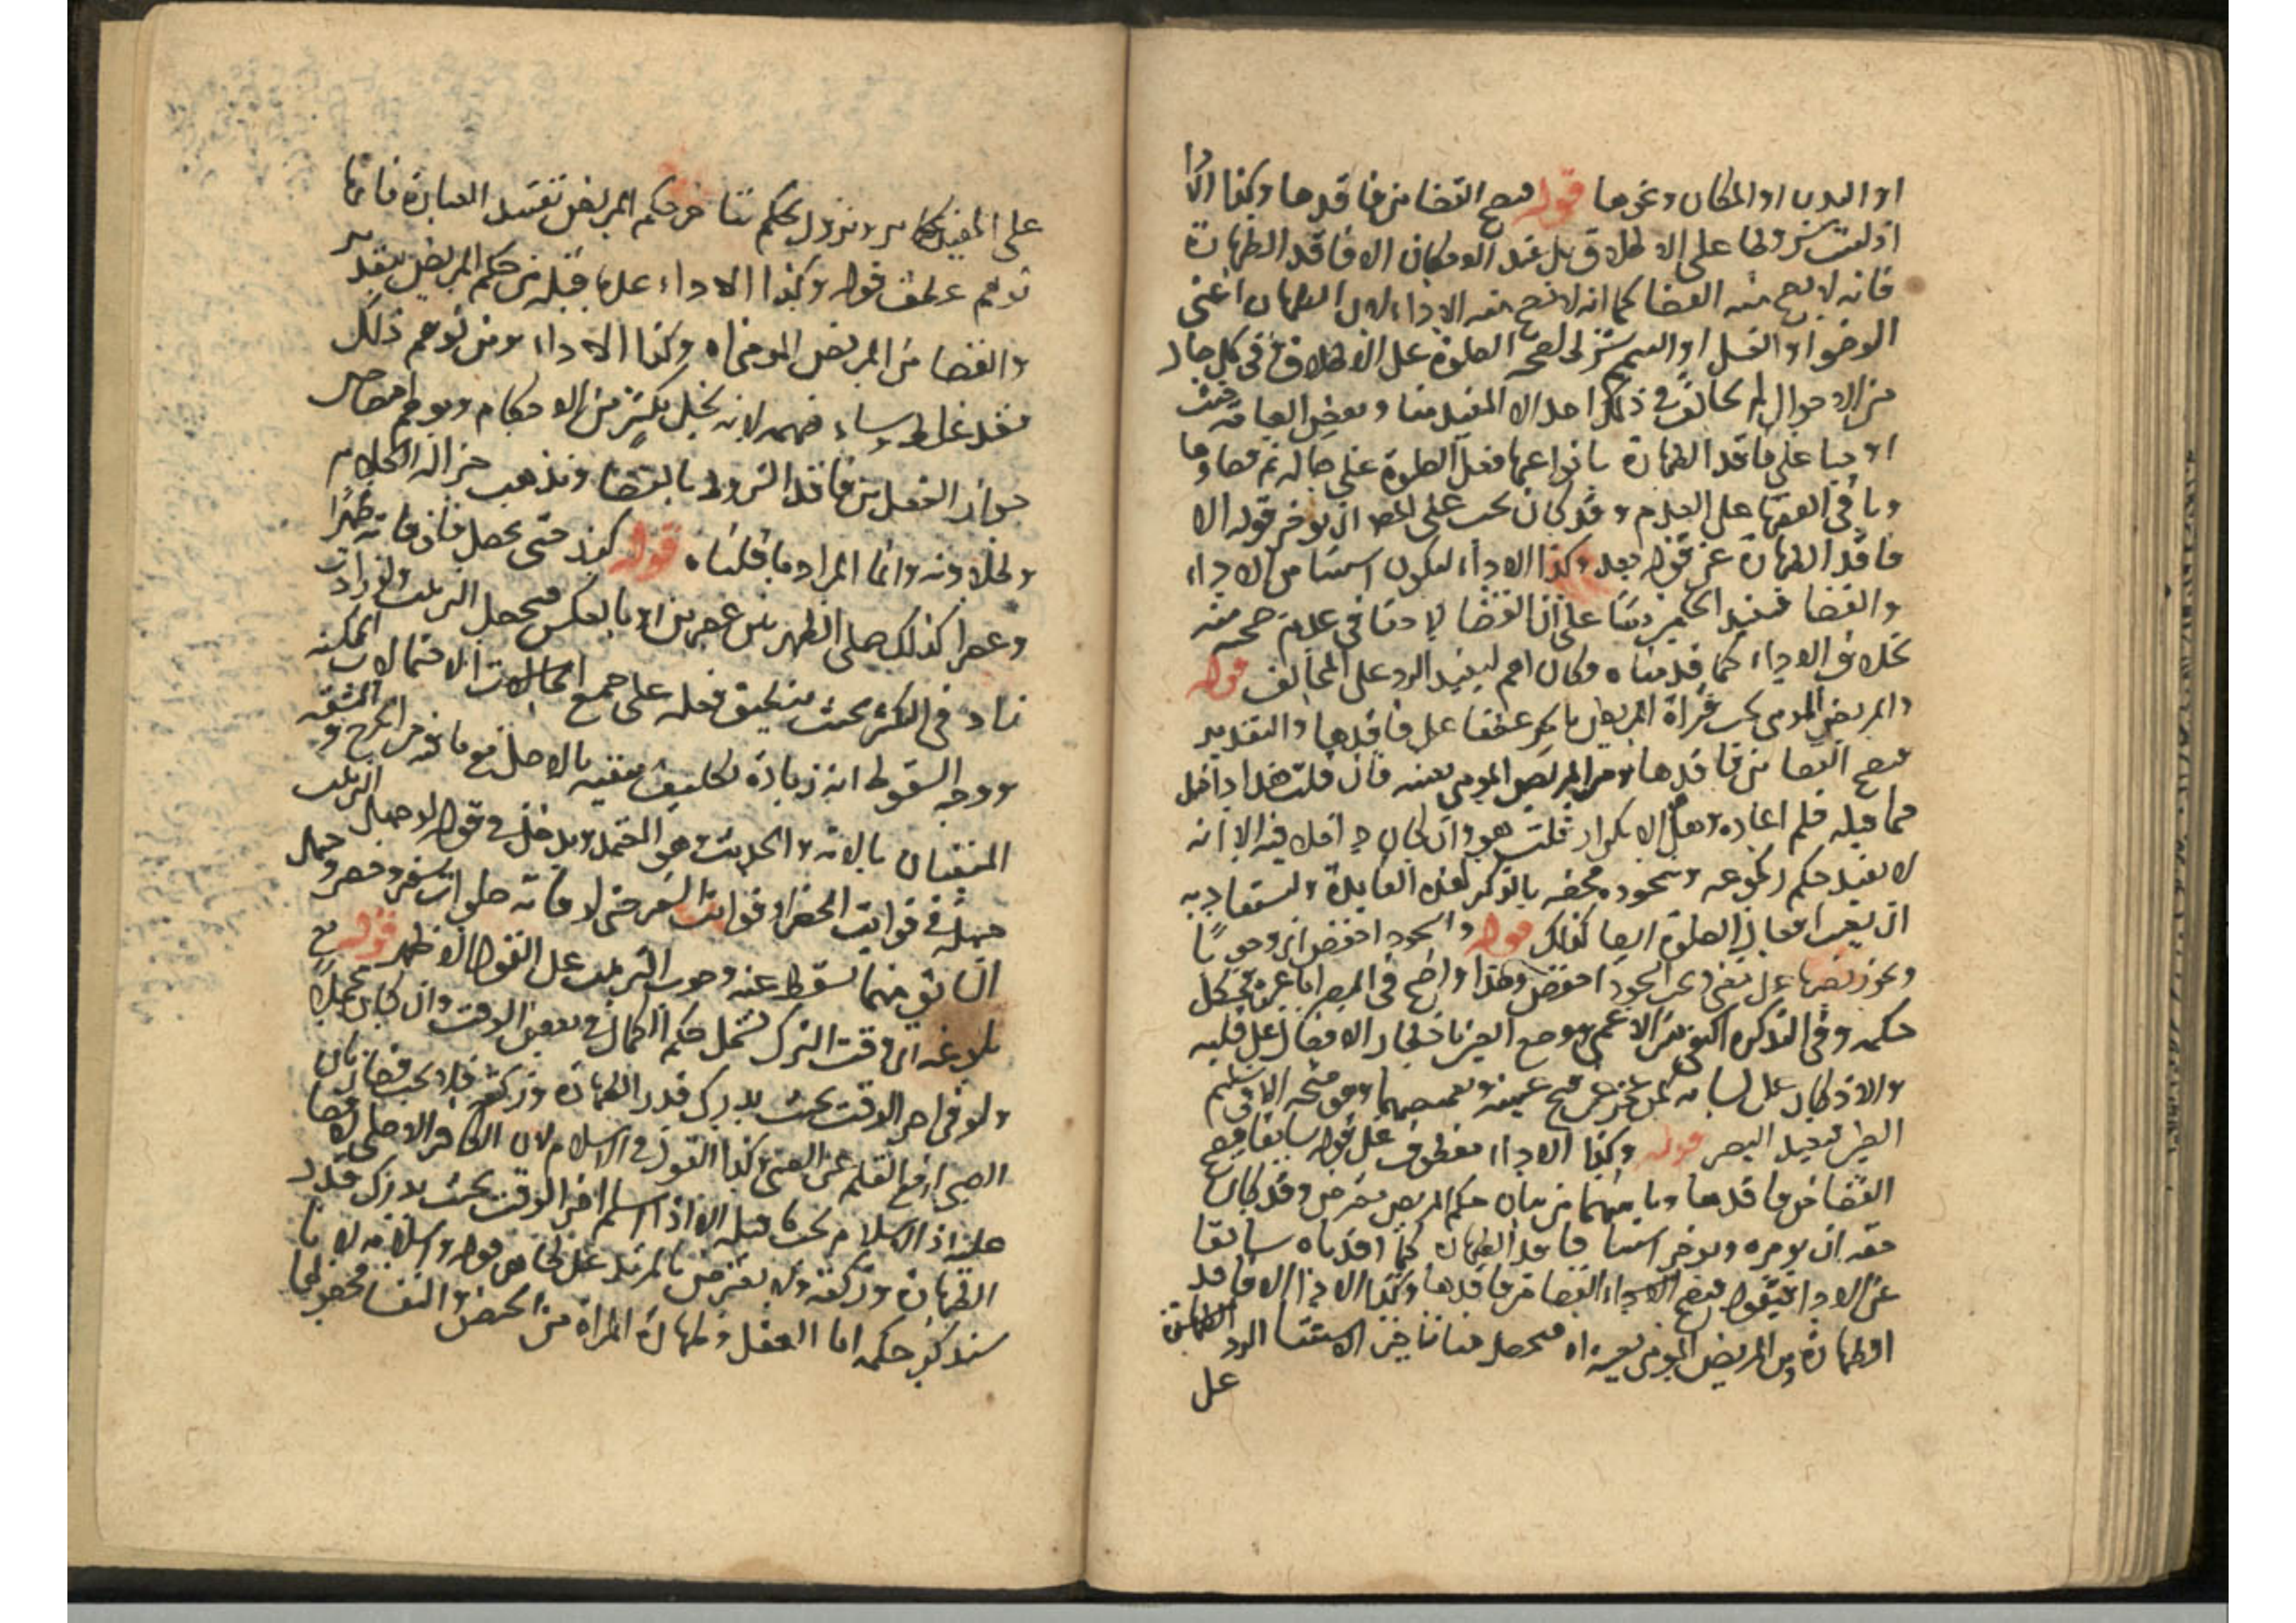 او البدن او المكان ونحوها قوله فيصح القضا من فاقدها وكذا الادا
اذ ليست شروطا على الاطلاق بل عند الامكان الا فاقد الطهارة
فانه لا يصح منه القضا كما انه لا يصح منه الاداء لان الطهارة اعنى
الوضوء او الغسل او التيمم شرط لصحة الصلوة على الاطلاق فى كل حال
من الاحوال لم يخالف فى ذلك احد الا المفيد منا وبعض العامة حيث
اوجبا على فاقد الطهارة بانواعها فعل الصلوة على حاله ثم قضاوها
وباقى الفقها على العدم وقد كان يجب على المص ان يوخر قوله الا
فاقد الطهارة عن قوله بعد وكذا الاداء ليكون استثنا من الاداء
والقضا فيفيد الحكمين على ان القضا لا فى عدم صحته منه
بخلاف الاداء كما قدمناه فكان اهم ليفيد الرد على المخالف قوله
والمريض المومى يجب قراة المريض بالجر عطفا على فاقدها والتقدير
فيصح القضا من فاقدها ومن المريض المومى بعينه فان قلت هذا داخل
فيما قبله فلم اعاده وهل الا تكرار قلت هو وان كان داخلا فيه الا انه
لا يفيد حكم ركوعه وسجوده فخصه بالذكر لهذه الفايدة وليستفاد به
ان يغير افعال الصلوة ايضا كذلك قوله والسجود اخفض اى وجوبا
ويجوز نصبها على معنى ويجعل السجود اخفض وهذا واضح فى المبصر اما غيره فيشكل
حكمه وفى التذكرة اكتفى من الاعمى ووجع العين باخطار الافعال على قلبه
والاذكار على لسانه لمن عجز عن فتح عينيه وتغميضهما وهو متجه الا فى سليم
الطرف فقيد البصر قوله وكذا الاداء معطوف على قوله سابقا فيصح
القضا من فاقدها وما بينهما من بيان حكم المريض معترض وقد كان
حقه ان يوخره ويوخر استثنا فاقد الطهارة كما قدمناه سابقا
عن الاداء فيقول فيصح القضا من فاقدها وكذا الاداء الا فاقد
الطهارة ومن المريض المومى بعينه اه فيحصل من تاخير الاستثنا الرد
على
على المفيد ولا حكم من حكم المريض تفسد العبارة فانها
توهم عطف قوله وكذا الاداء على ما قبله من حكم المريض بتقدير
والقضا من المريض المومى اه وكذا الاداء ومن توهم ذلك
فقد غلط وساء فهمه لانه يخل بكثير من الاحكام ويوهم اختصاص
جواز الفعل من فاقد الشروط بالقضا وتذهب جزالة الكلام
وطلاوته وانما المراد ما قلناه قوله كررت حتى يحصل فان فاته ظهرا
وعصرا كذلك صلى الظهر بين عصرين او بالعكس فيحصل الترتيب ولو زادت
زاد فى التكرير بحيث ينطبق فعله على جميع الاحتمالات الممكنة
ووجه السقوط انه زيادة تكليف منفية بالاصل مع ما فيه من الحرج والمشقة
المنفيان بالاية والحديث وهو المعتمد ويدخل فى قوله لو جهل الترتيب
جهله فى فوايت الحضر او فوايت السفر حتى لو فاته صلوات سفر وحضر وجهل
السابق منهما سقط عنه وجوب الترتيب على القول الاظهر قوله مع
بلوغه اى وقت الترك يشمل حكم الكمال فى بعض الوقت وان كان مجملا
ولو فى اخر الوقت بحيث يدرك قدر الطهارة وركعة فلا يجب قضا زمان
الصبى لرفع القلم عن الصبى وكذا القول فى الاسلام لان الكافر الاصلى لا قضا
عليه اذ الاسلام يجب ما قبله الا اذا اسلم اخر الوقت بحيث يدرك قدر
الطهارة وركعة ولا يعترض بالمرتد على ظاهر قوله واسلامه لانا
سنذكر حكمه اما العقل وطهارة المراة من الحيض والنفاس